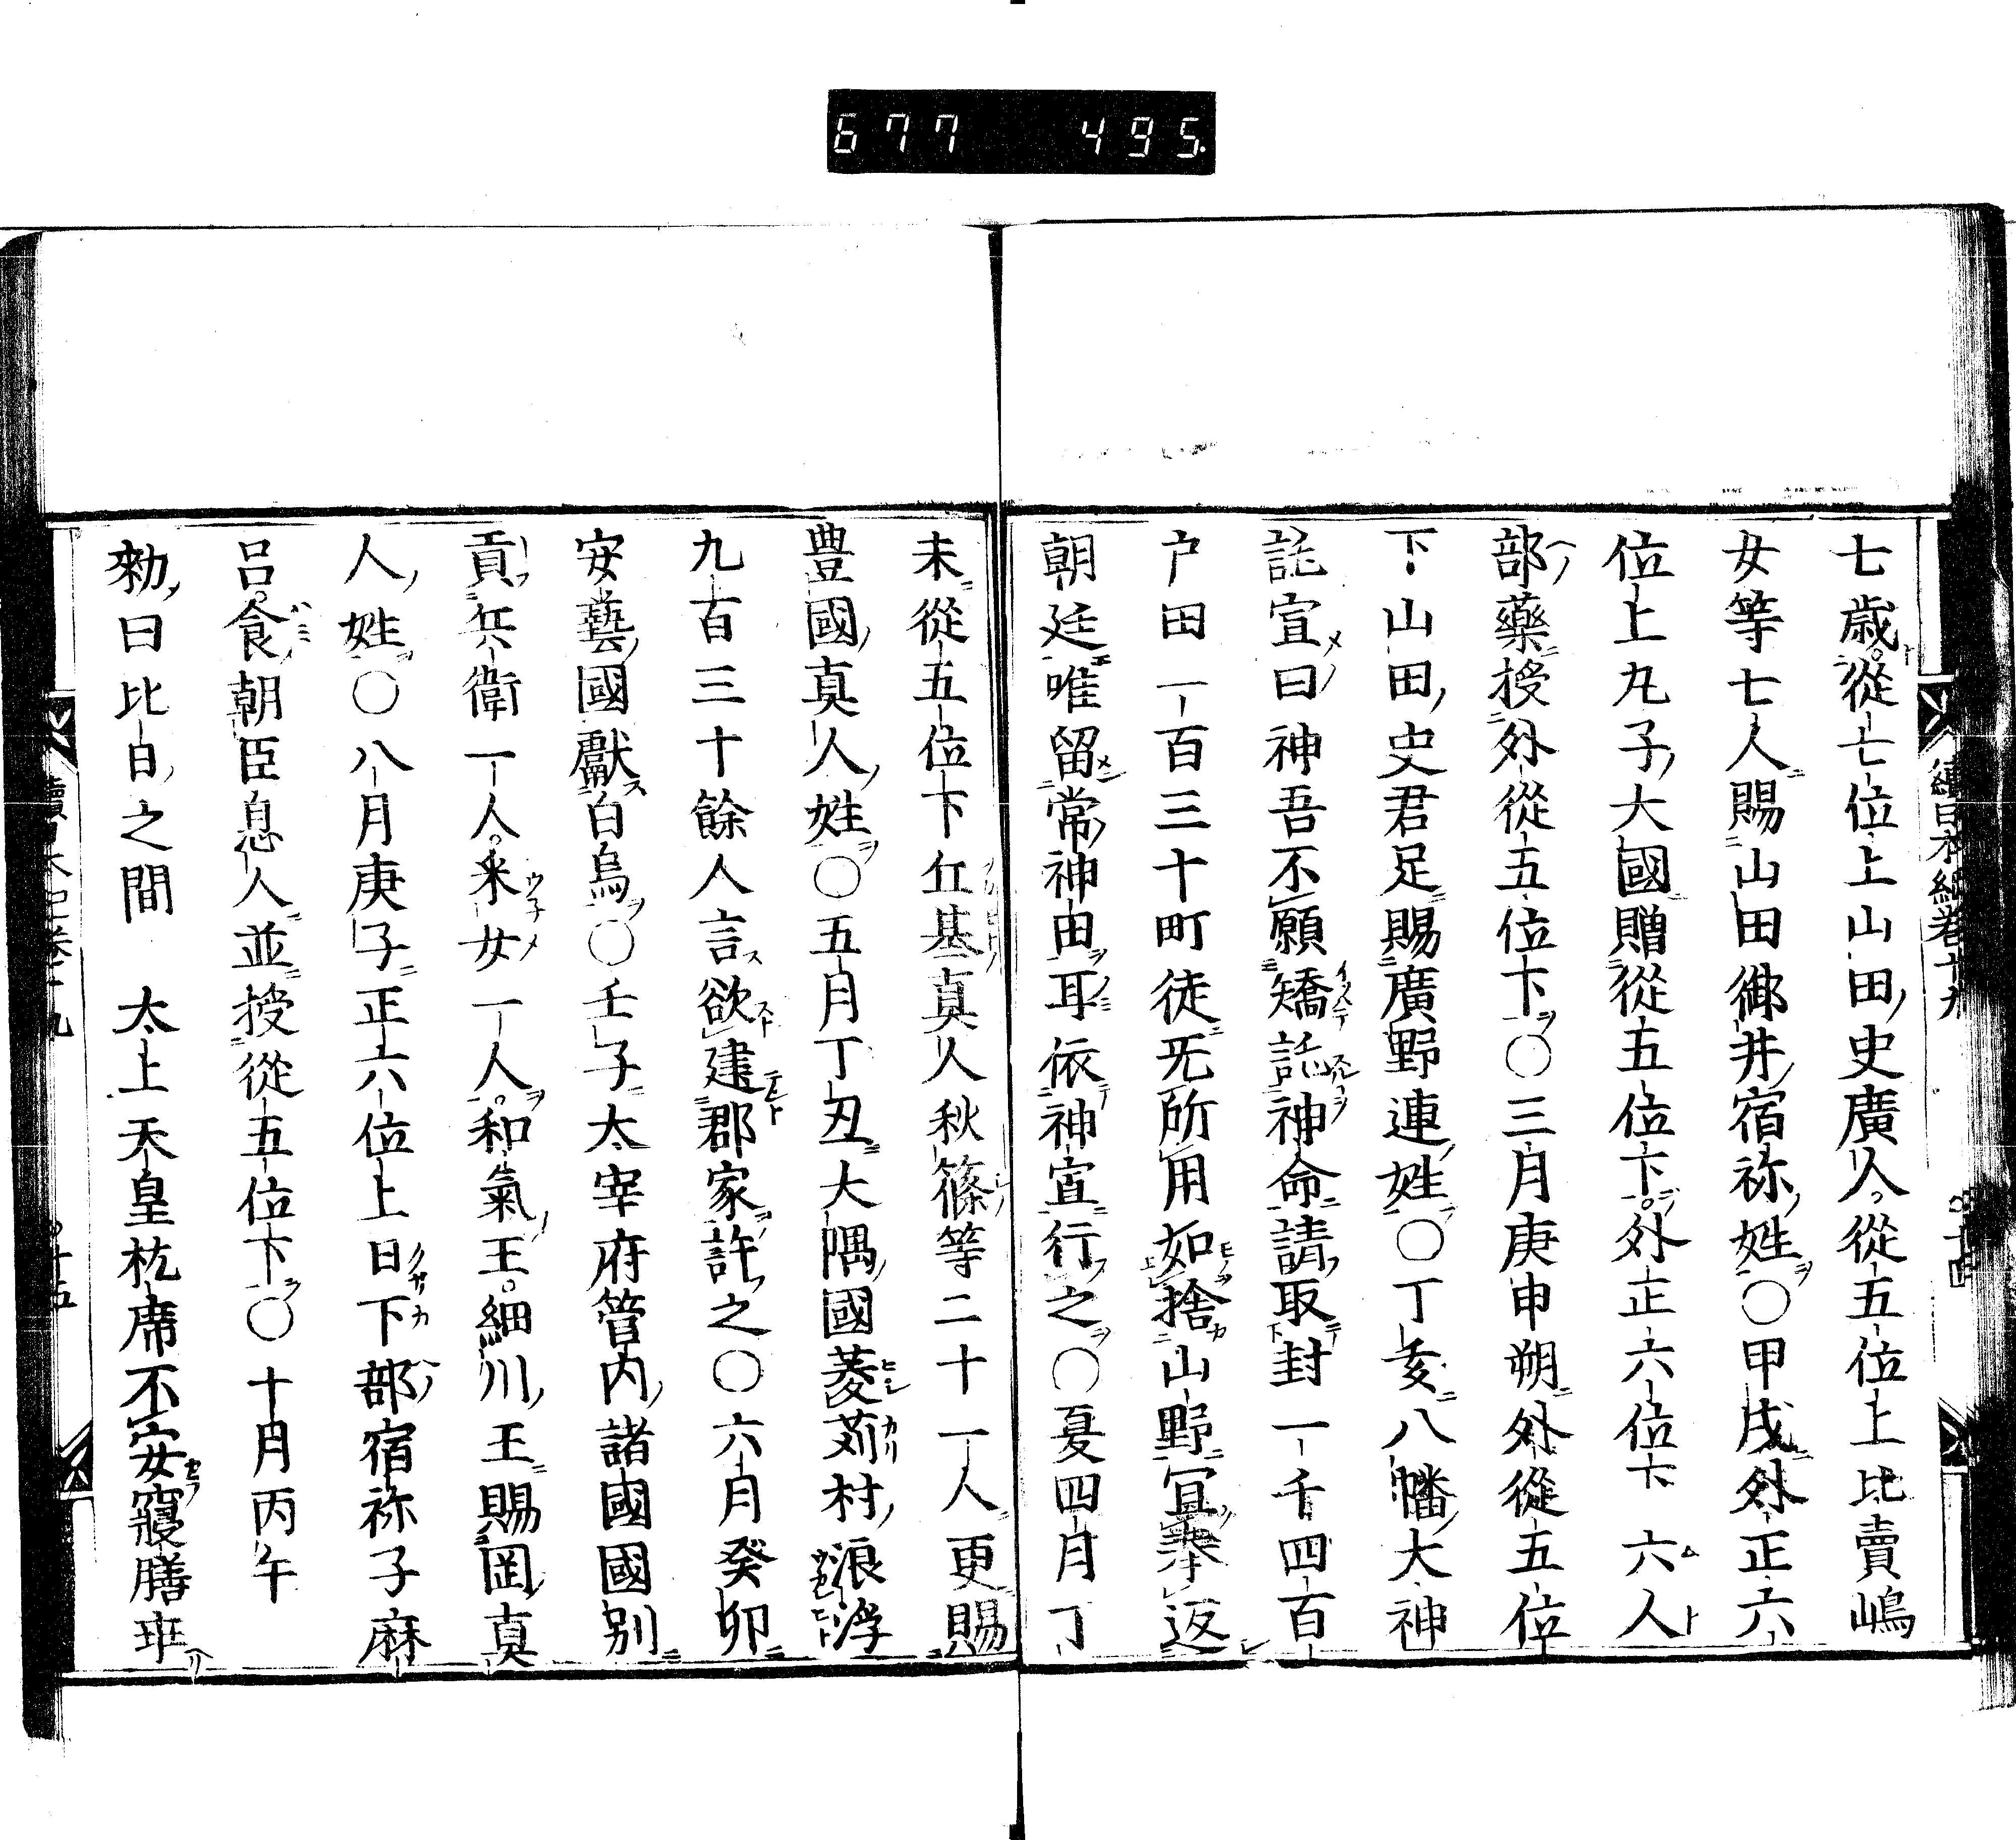 677 495.
續日本紀卷十九 十四
七歳從七位上山田史廣人從五位上比賣嶋
女等七人賜山田御井宿祢姓○甲戌外正六
位上丸子大國贈從五位下外正六位下六人
部藥授外從五位下○三月庚申朔外從五位
下山田史君足賜廣野連姓○丁亥八幡大神
託宣曰神吾不願矯託神命請取封一千四百
户田一百三十町徒无所用如捨山野冝奉返
朝廷唯留常神由耳依神宣行之○夏四月丁
未從五位下丘基真人秋篠等二十一人更賜
豊國真人姓○五月丁丑大隅國菱苅村浪浮
九百三十餘人言欲建郡家許之○六月癸卯
安藝國獻白烏○壬子太宰府管内諸國國別
貢兵衛一人采女一人和氣王細川王賜岡真
人姓○八月庚子正六位上日下部宿祢子麻
呂食朝臣息人並授從五位下○十月丙午
勑曰比日之間 太上天皇枕席不安寢膳乖
十五